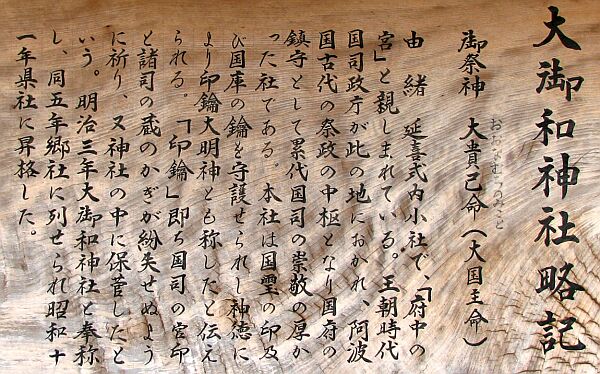 大御和神社略記
おおなむちのみこと
御祭神 大貴己命(大国王命)
由緒 延喜式内小社で、「府中の
宮」と親しまれている。王朝時代
国司政庁が此の地におかれ、阿波
国古代の祭政の中枢となり国府の
鎮守として累代国司の崇敬の厚か
った社である。本社は国璽の印及
び国庫の鑰を守護せられし神徳に
より印鑰大明神とも称したと伝え
られる。「印鑰」即ち国司の官印
と諸司の蔵のかぎが紛失せぬよう
に祈り、又神社の中に保管したと
いう。明治三年大御和神社と奉称
し、同五年郷社に列せられ昭和十
一年県社に昇格した。